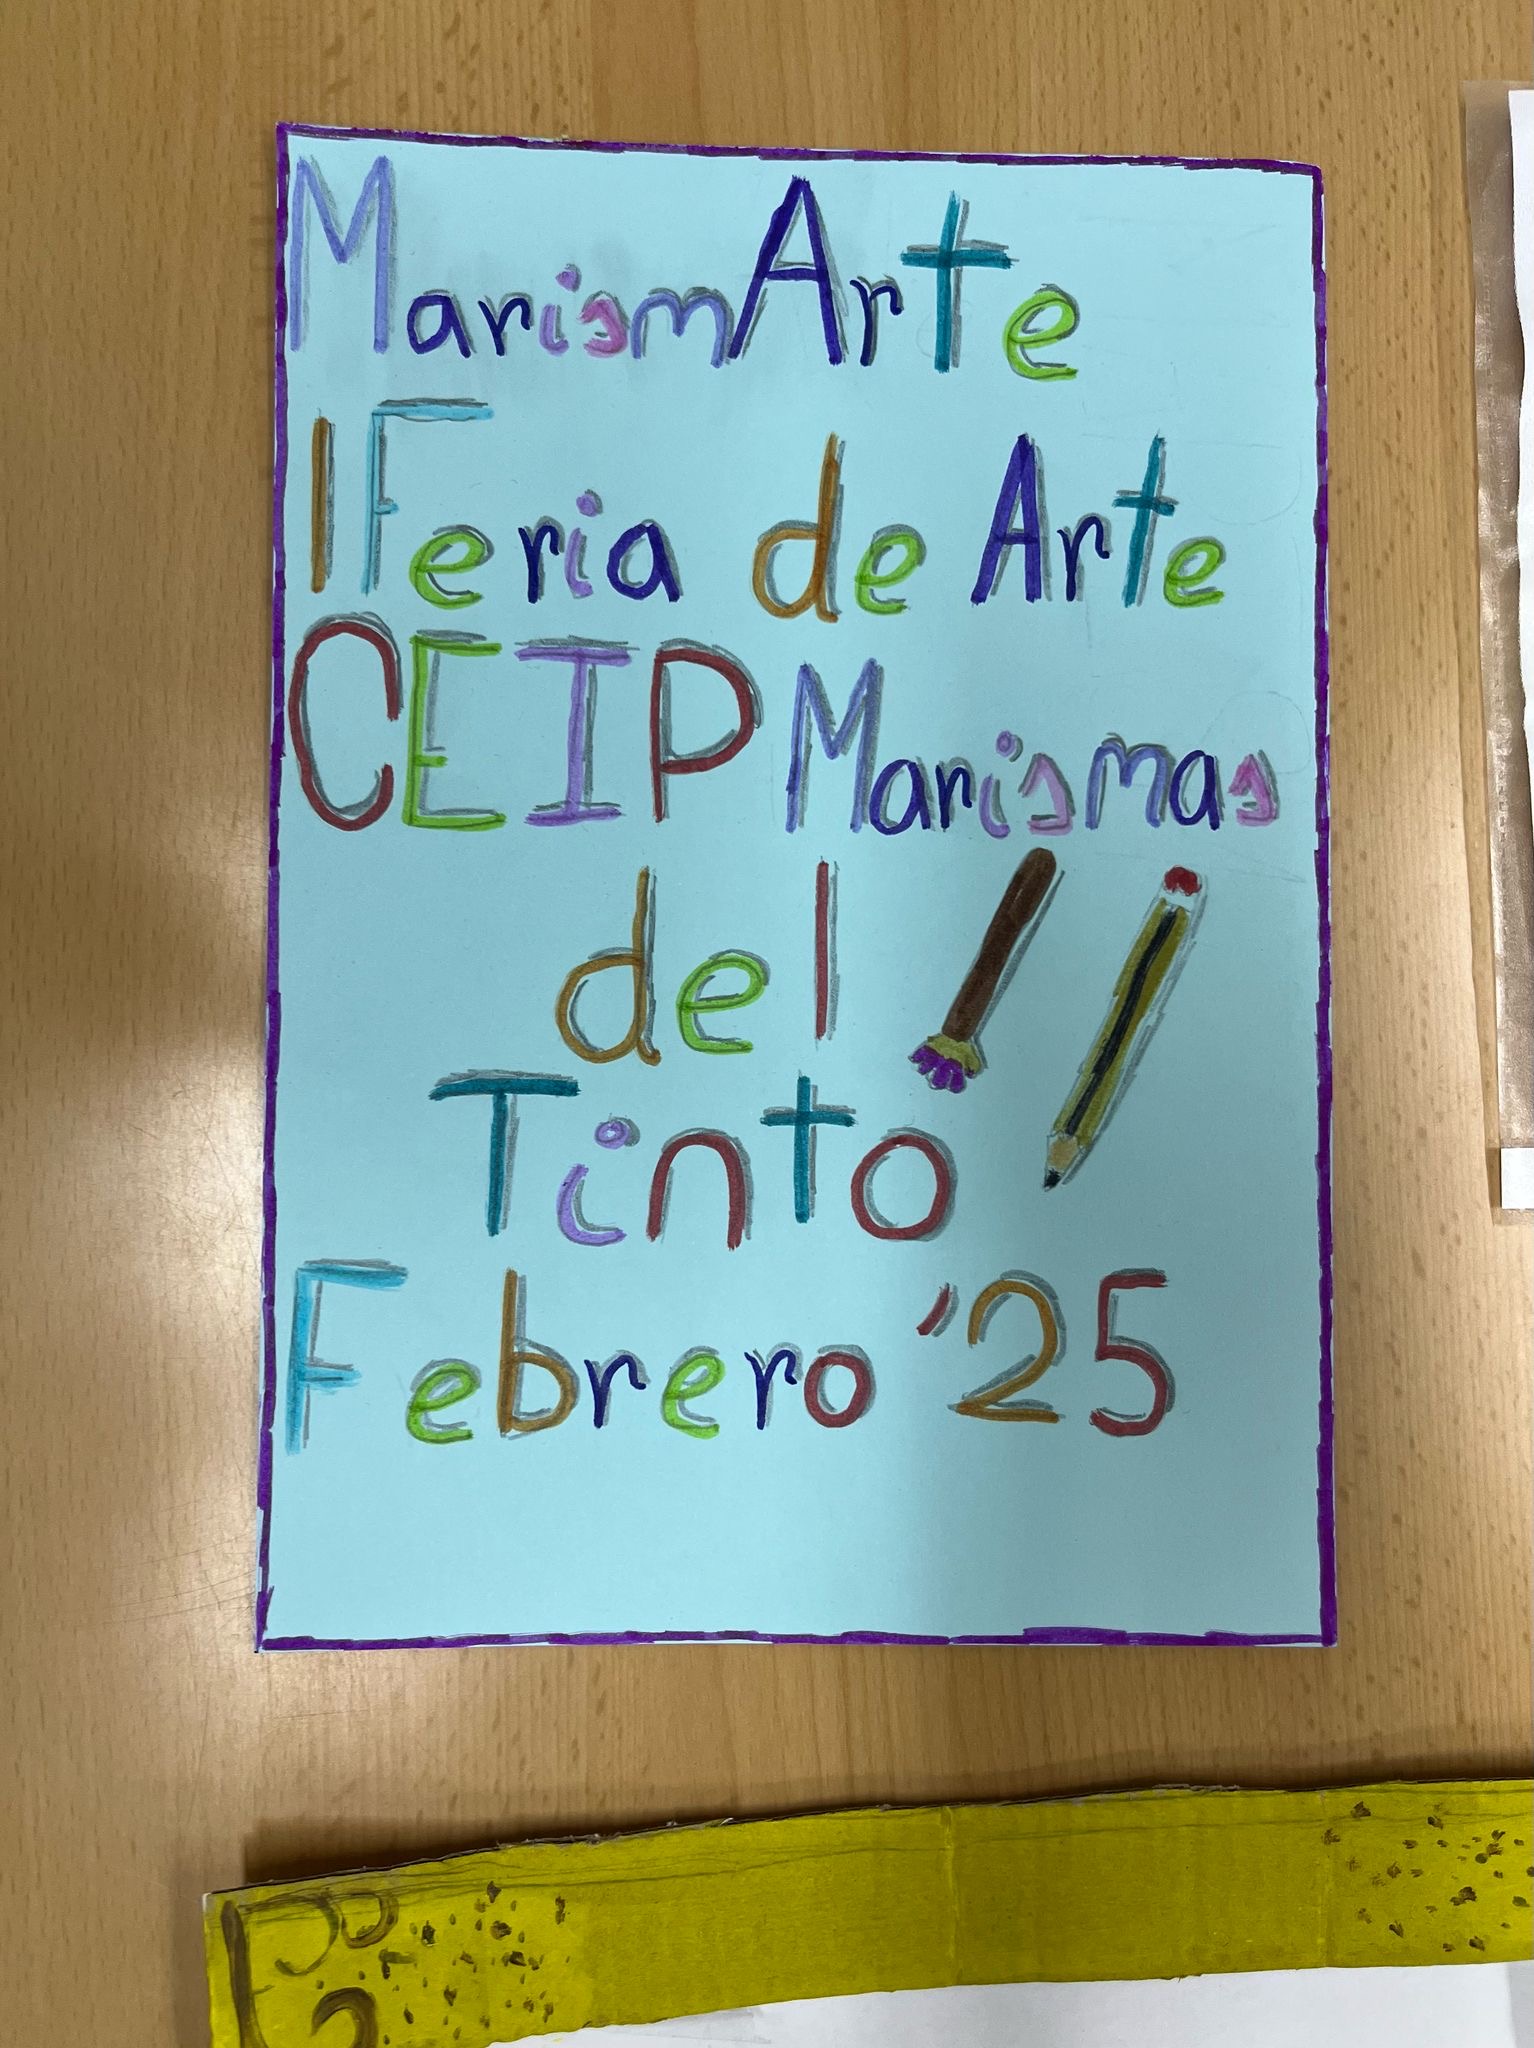 MarismArte
I Feria de Arte
CEIP Marismas
del
Tinto
Febrero '25